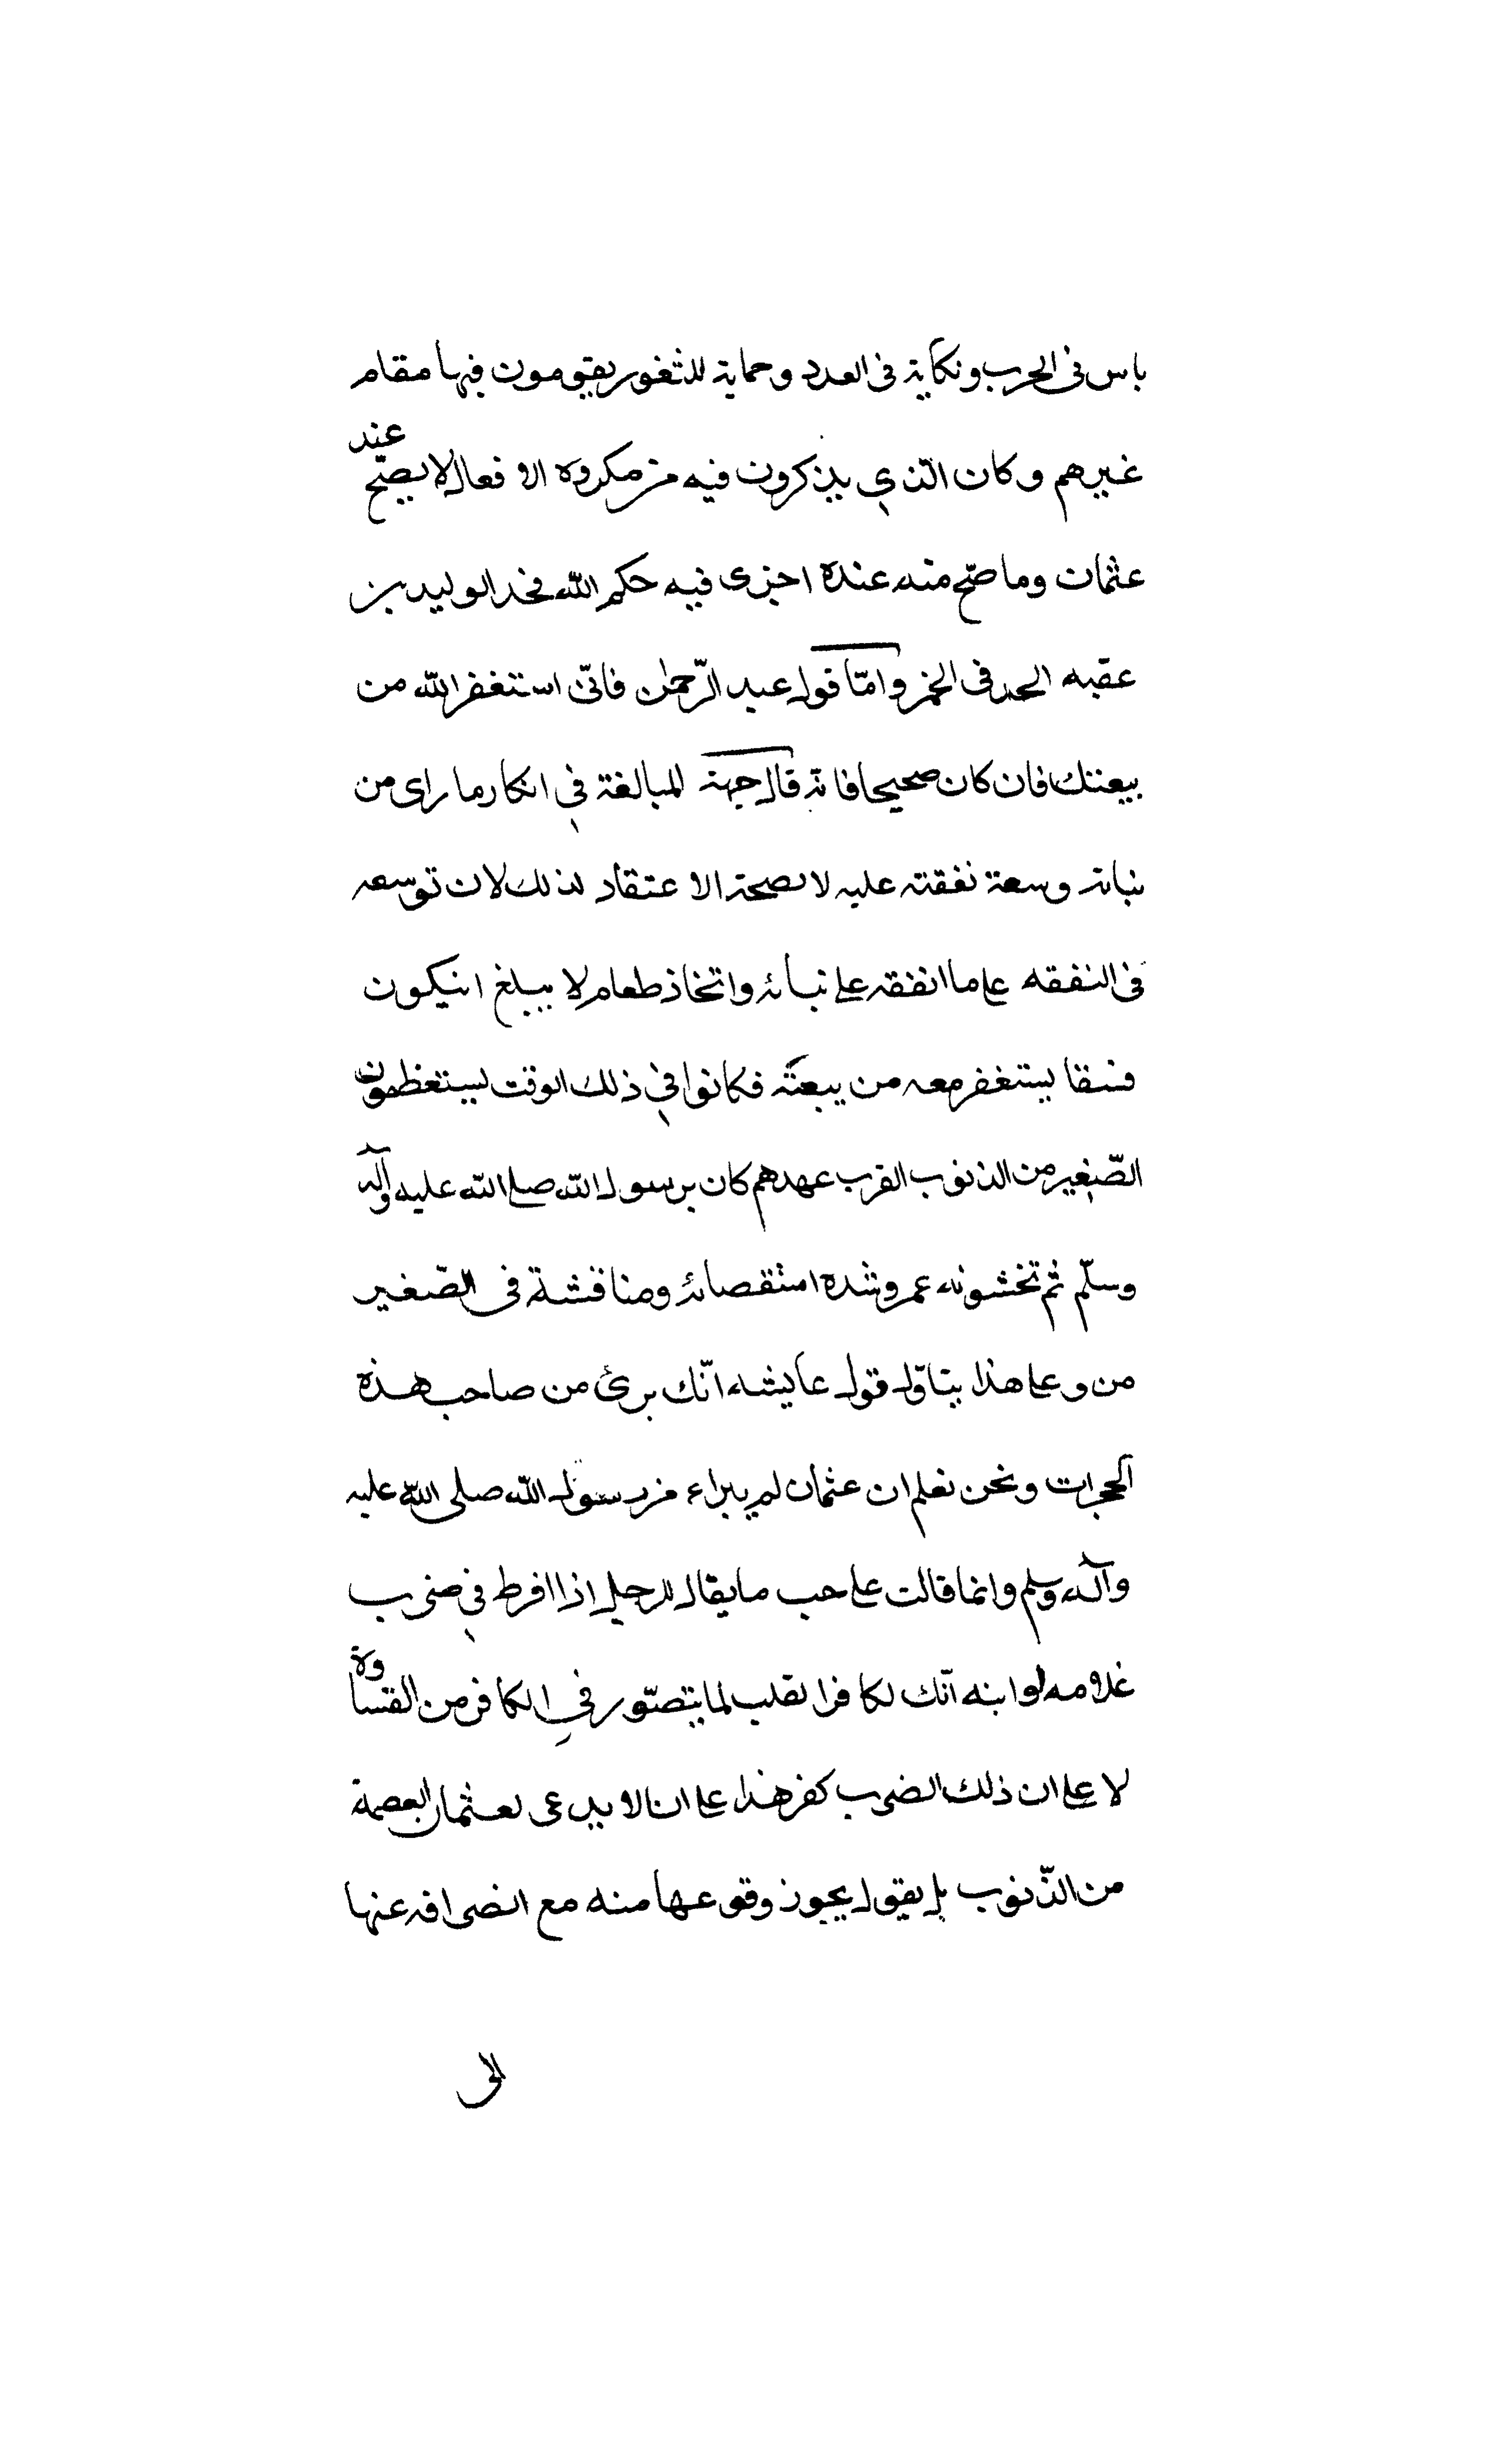 باس فى الحرب ونكاية فى العدد وحماية للثغور يقومون فيها مقام
غيرهم وكان الذي يذكرون فيه من مكروه الافعال لا يصحّ عند
عثمان وما صحّ منه عنده اجرى فيه حكم الله فحد الوليد بن
عقبه الحد فى الخمر وامّا قول عبد الرّحمن فانّى استغفر الله من
بيعتك فان كان صحيحا فانّه قال جهة المبالغة في انكار ما راى من
بنيانه وسعة نفقته عليه لا لصحة الاعتقاد لذلك لان توسعه
فى النفقه على ما انفقه على بنائه واتخاذ طعام لا يبلغ انيكون
فسقا يستغفر معه من بيعته فكانوا في ذلك الوقت يستعظمون
الصّغير من الذنوب القرب عهدهم كان برسول الله صلى الله عليه وآله
وسلّم ثم تخشونه عمر وشده استقصائه ومناقشة فى الصّغير
من وعلى هذا يتاوّل قول عايشه انّك برئ من صاحب هذه
الحجرات ونحن نعلم ان عثمان لم يبراء من رسول الله صلى الله عليه
وآله وسلم وانما قالت على حب ما يقال للرجل اذا افرط في ضرب
غلامه او ابنه انّك لكافر القلب لما يتصّور في الكافر من القساوة
لا على ان ذلك الضرب كفر هذا على انا لا يدعى لعثمان العصمة
من الذّنوب بل يقول يجوز وقوعها منه مع انصرافه عنها
الى